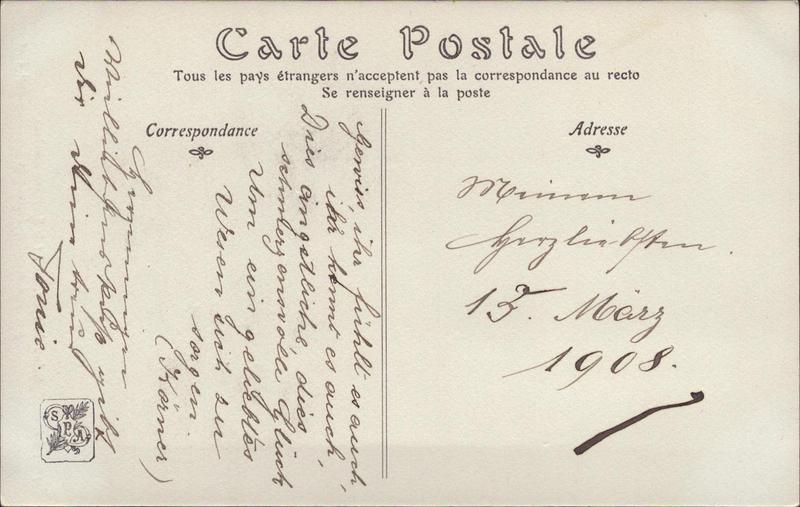 Carte Postale
Tous les pays étrangers n'acceptent pas la correspondance au recto
Se renseigner à la poste
Correspondance
Adresse
Gewiss, ihr fühlt es auch,
ihr kennt es auch,
Dies ängstliche, dies
schmerzensvolle Glück
Um ein geliebtes
Wesen sich zu
sorgen
(Körner)
gibt
Dir Deine
Tonie.
Meinem
Herzliebsten.
13. März
1908.
S P A